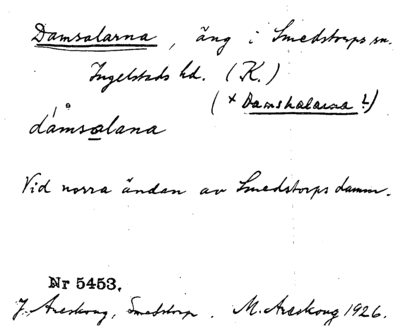 Damsalarna, äng i Smedstorps sn.
Ingelstads hd. (K.)
(* Damshalarna ?)
dåmsalana
Vid norra ändan av Smedstorps damm.
Nr 5453.
J. Areskoug, Smedstorp. M. Areskoug 1926.